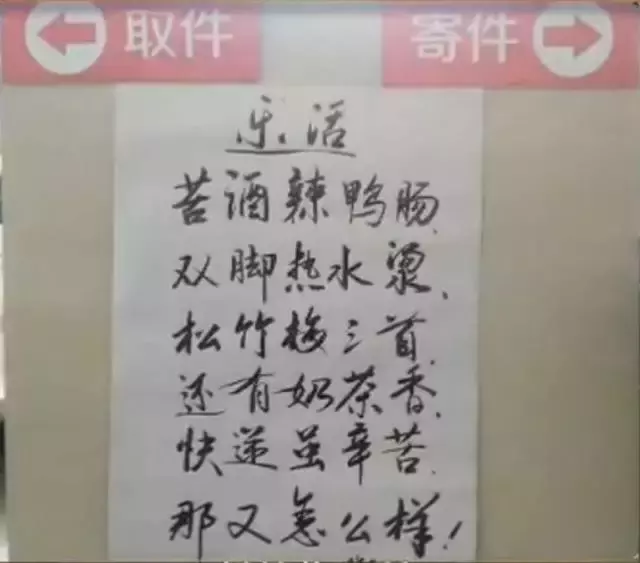 取件 寄件
乐活
苦酒辣鸭肠、
双脚热水烫、
松竹梅三首、
还有奶茶香、
快递虽辛苦、
那又怎么样!